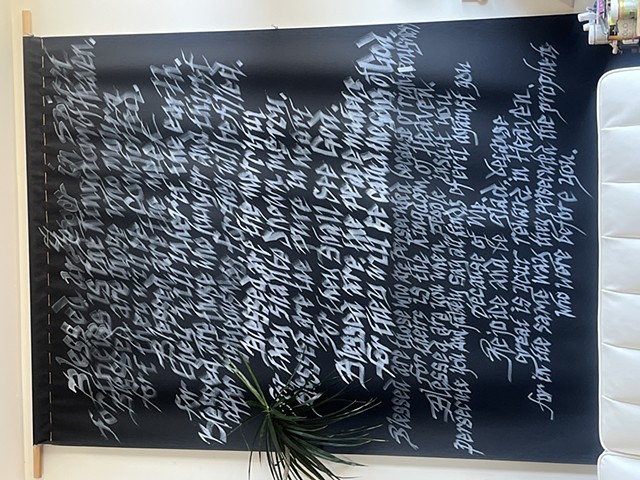 Blessed are the poor in spirit
for theirs is the Kingdom of Heaven.
Blessed are those who mourn
for they will be comforted.
Blessed are the meek
for they will inherit the earth.
Blessed are those who hunger and thirst
after righteousness for they will be filled.
Blessed are the merciful
for they shall be shown mercy.
Blessed are the pure in heart
for they shall see God.
Blessed are the peacemakers
for they will be called the sons of God.
Blessed are those who are persecuted because of righteousness
for theirs is the Kingdom of Heaven.
Blessed are you when people insult you
persecute you and falsely say all kinds of evil against you
because of Me.
Rejoice and be glad, because
great is your reward in Heaven.
for in the same way they persecuted the prophets
who were before you.